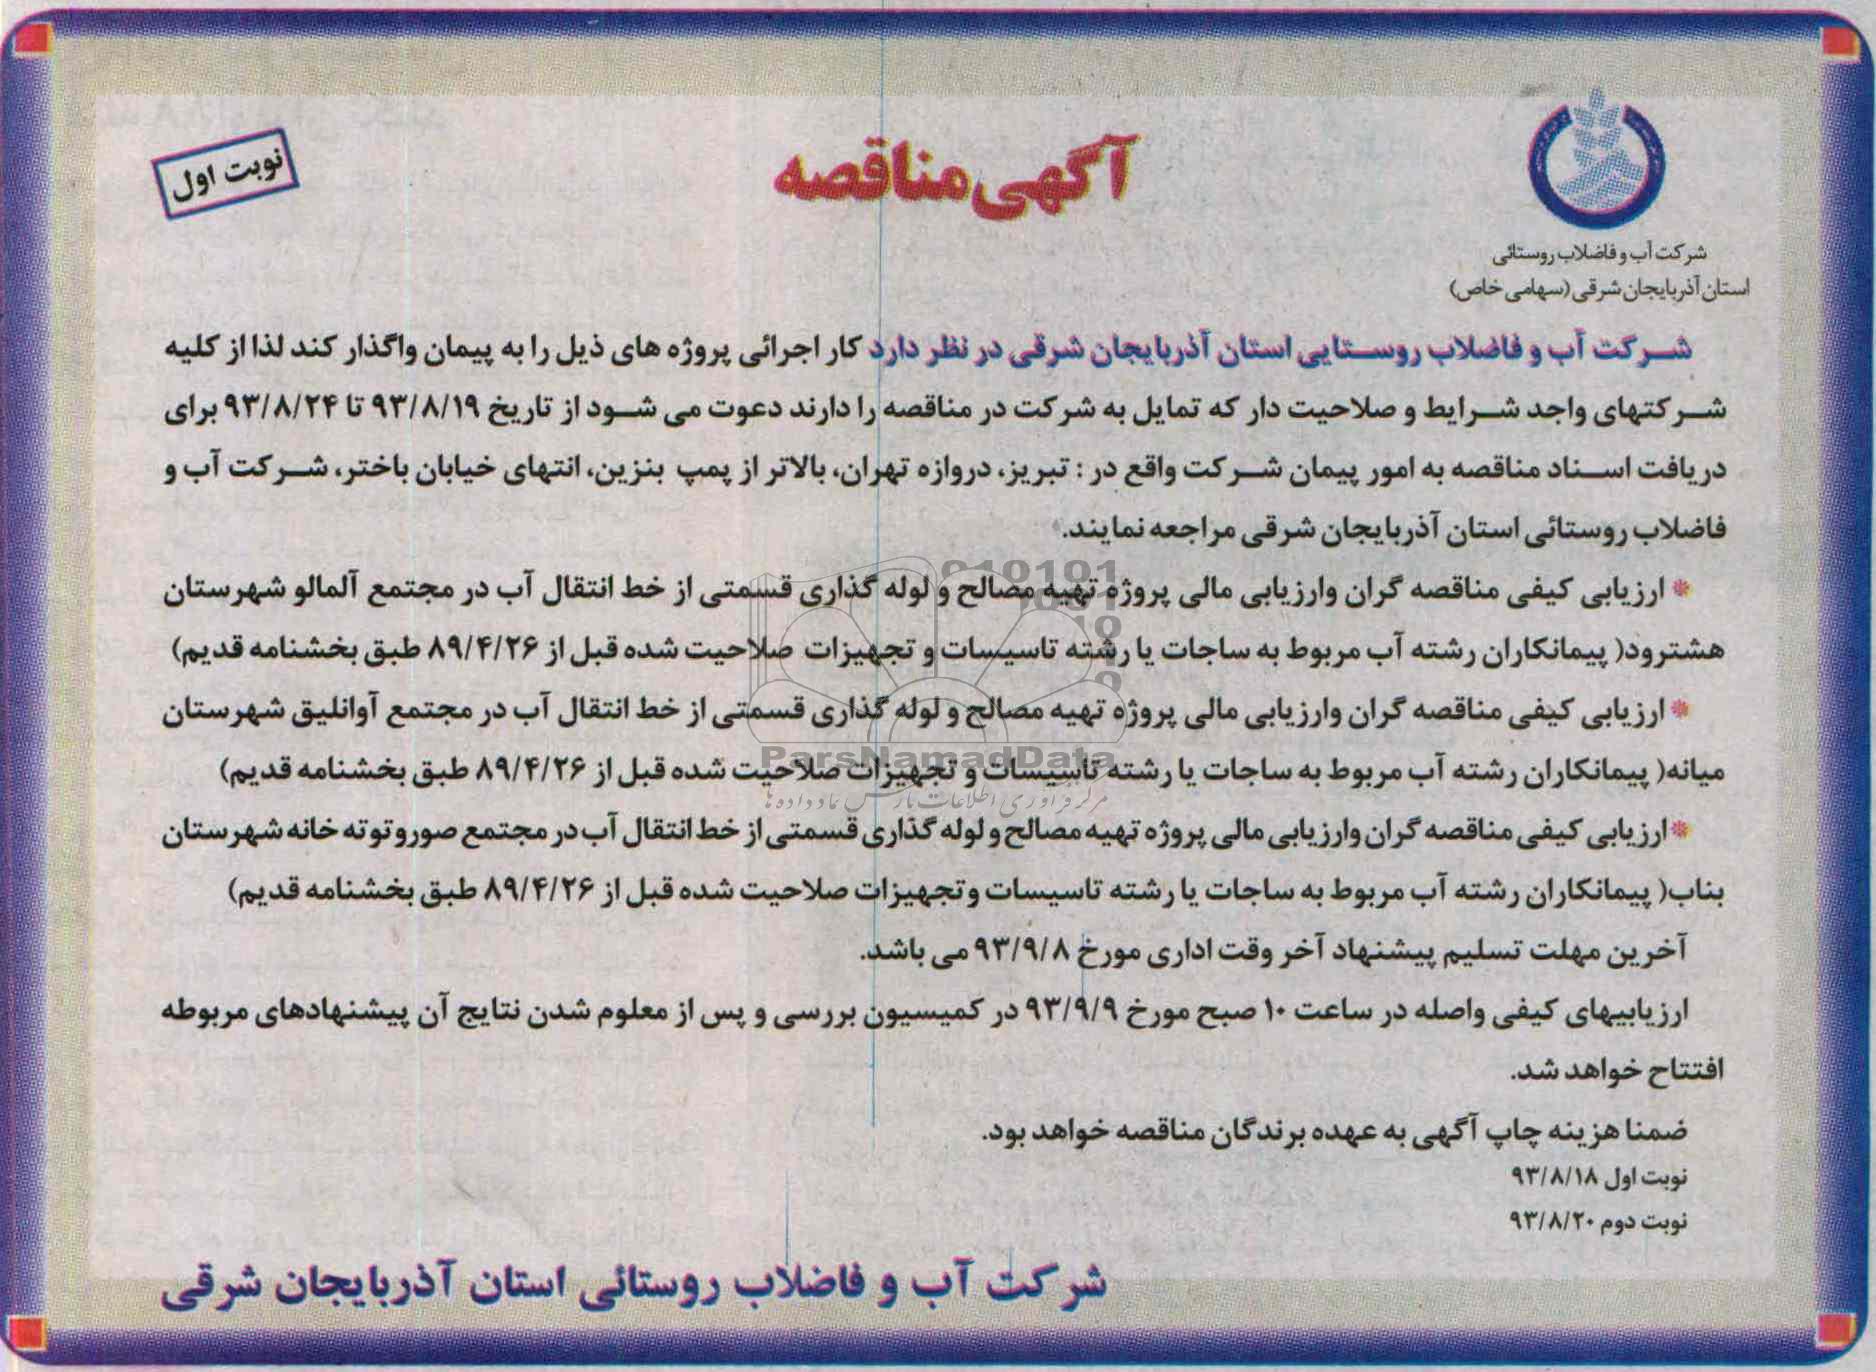 شرکت آب و فاضلاب روستائی
استان آذربایجان شرقی (سهامی خاص)
آگهی مناقصه
نوبت اول
شرکت آب و فاضلاب روستایی استان آذربایجان شرقی در نظر دارد کار اجرائی پروژه های ذیل را به پیمان واگذار کند لذا از کلیه
شرکتهای واجد شرایط و صلاحیت دار که تمایل به شرکت در مناقصه را دارند دعوت می شود از تاریخ ۹۳/۸/۱۹ تا ۹۳/۸/۲۴ برای
دریافت اسناد مناقصه به امور پیمان شرکت واقع در : تبریز، دروازه تهران، بالاتر از پمپ بنزین، انتهای خیابان باختر، شرکت آب و
فاضلاب روستائی استان آذربایجان شرقی مراجعه نمایند.
* ارزیابی کیفی مناقصه گران وارزیابی مالی پروژه تهیه مصالح و لوله گذاری قسمتی از خط انتقال آب در مجتمع آلمالو شهرستان
هشترود( پیمانکاران رشته آب مربوط به ساجات یا رشته تاسیسات و تجهیزات صلاحیت شده قبل از ۸۹/۴/۲۶ طبق بخشنامه قدیم)
* ارزیابی کیفی مناقصه گران وارزیابی مالی پروژه تهیه مصالح و لوله گذاری قسمتی از خط انتقال آب در مجتمع آوانلیق شهرستان
میانه( پیمانکاران رشته آب مربوط به ساجات یا رشته تاسیسات و تجهیزات صلاحیت شده قبل از ۸۹/۴/۲۶ طبق بخشنامه قدیم)
* ارزیابی کیفی مناقصه گران وارزیابی مالی پروژه تهیه مصالح و لوله گذاری قسمتی از خط انتقال آب در مجتمع صور و توته خانه شهرستان
بناب( پیمانکاران رشته آب مربوط به ساجات یا رشته تاسیسات وتجهیزات صلاحیت شده قبل از ۸۹/۴/۲۶ طبق بخشنامه قدیم)
آخرین مهلت تسلیم پیشنهاد آخر وقت اداری مورخ ۹۳/۹/۸ می باشد.
ارزیابیهای کیفی واصله در ساعت ۱۰ صبح مورخ ۹۳/۹/۹ در کمیسیون بررسی و پس از معلوم شدن نتایج آن پیشنهادهای مربوطه
افتتاح خواهد شد.
ضمنا هزینه چاپ آگهی به عهده برندگان مناقصه خواهد بود.
نوبت اول ۹۳/۸/۱۸
نوبت دوم ۹۳/۸/۲۰
شرکت آب و فاضلاب روستائی استان آذربایجان شرقی
ParsNamadData
مرکز فرآوری اطلاعات پارس نماد داده ها